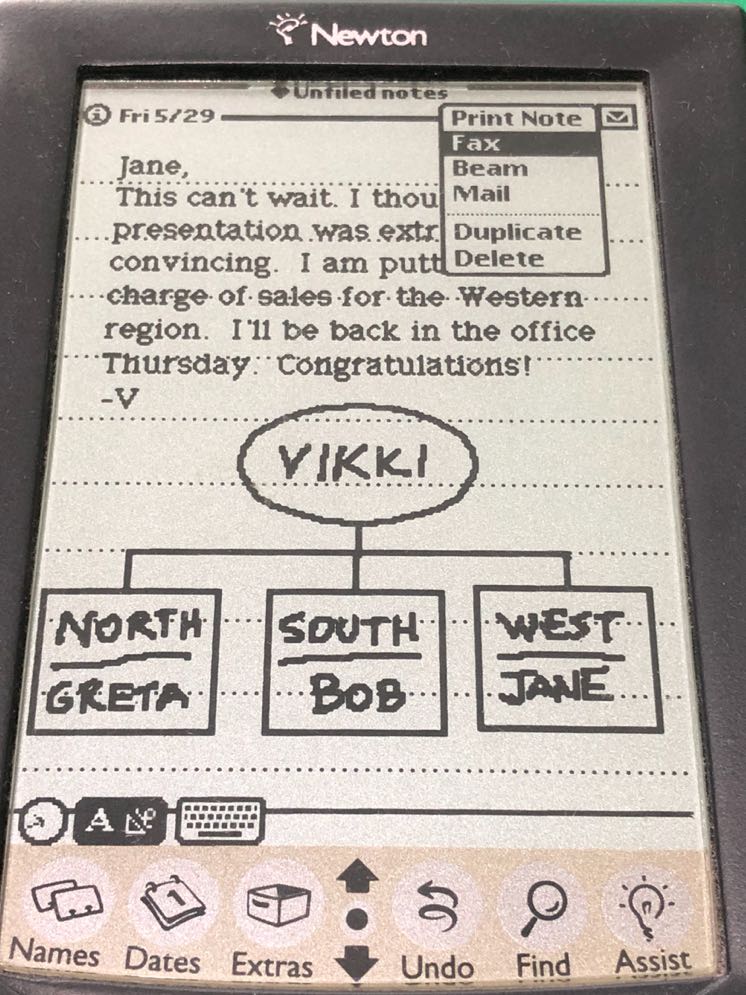 Newton
Unfiled notes
Fri 5/29
Print Note
Fax
Beam
Mail
Duplicate
Delete
Jane,
This can't wait. I thou
presentation was extr
convincing. I am putt
charge of sales for the Western
region. I'll be back in the office
Thursday. Congratulations!
-V
VIKKI
NORTH
GRETA
SOUTH
BOB
WEST
JANE
A
1
Names Dates Extras Undo Find Assist